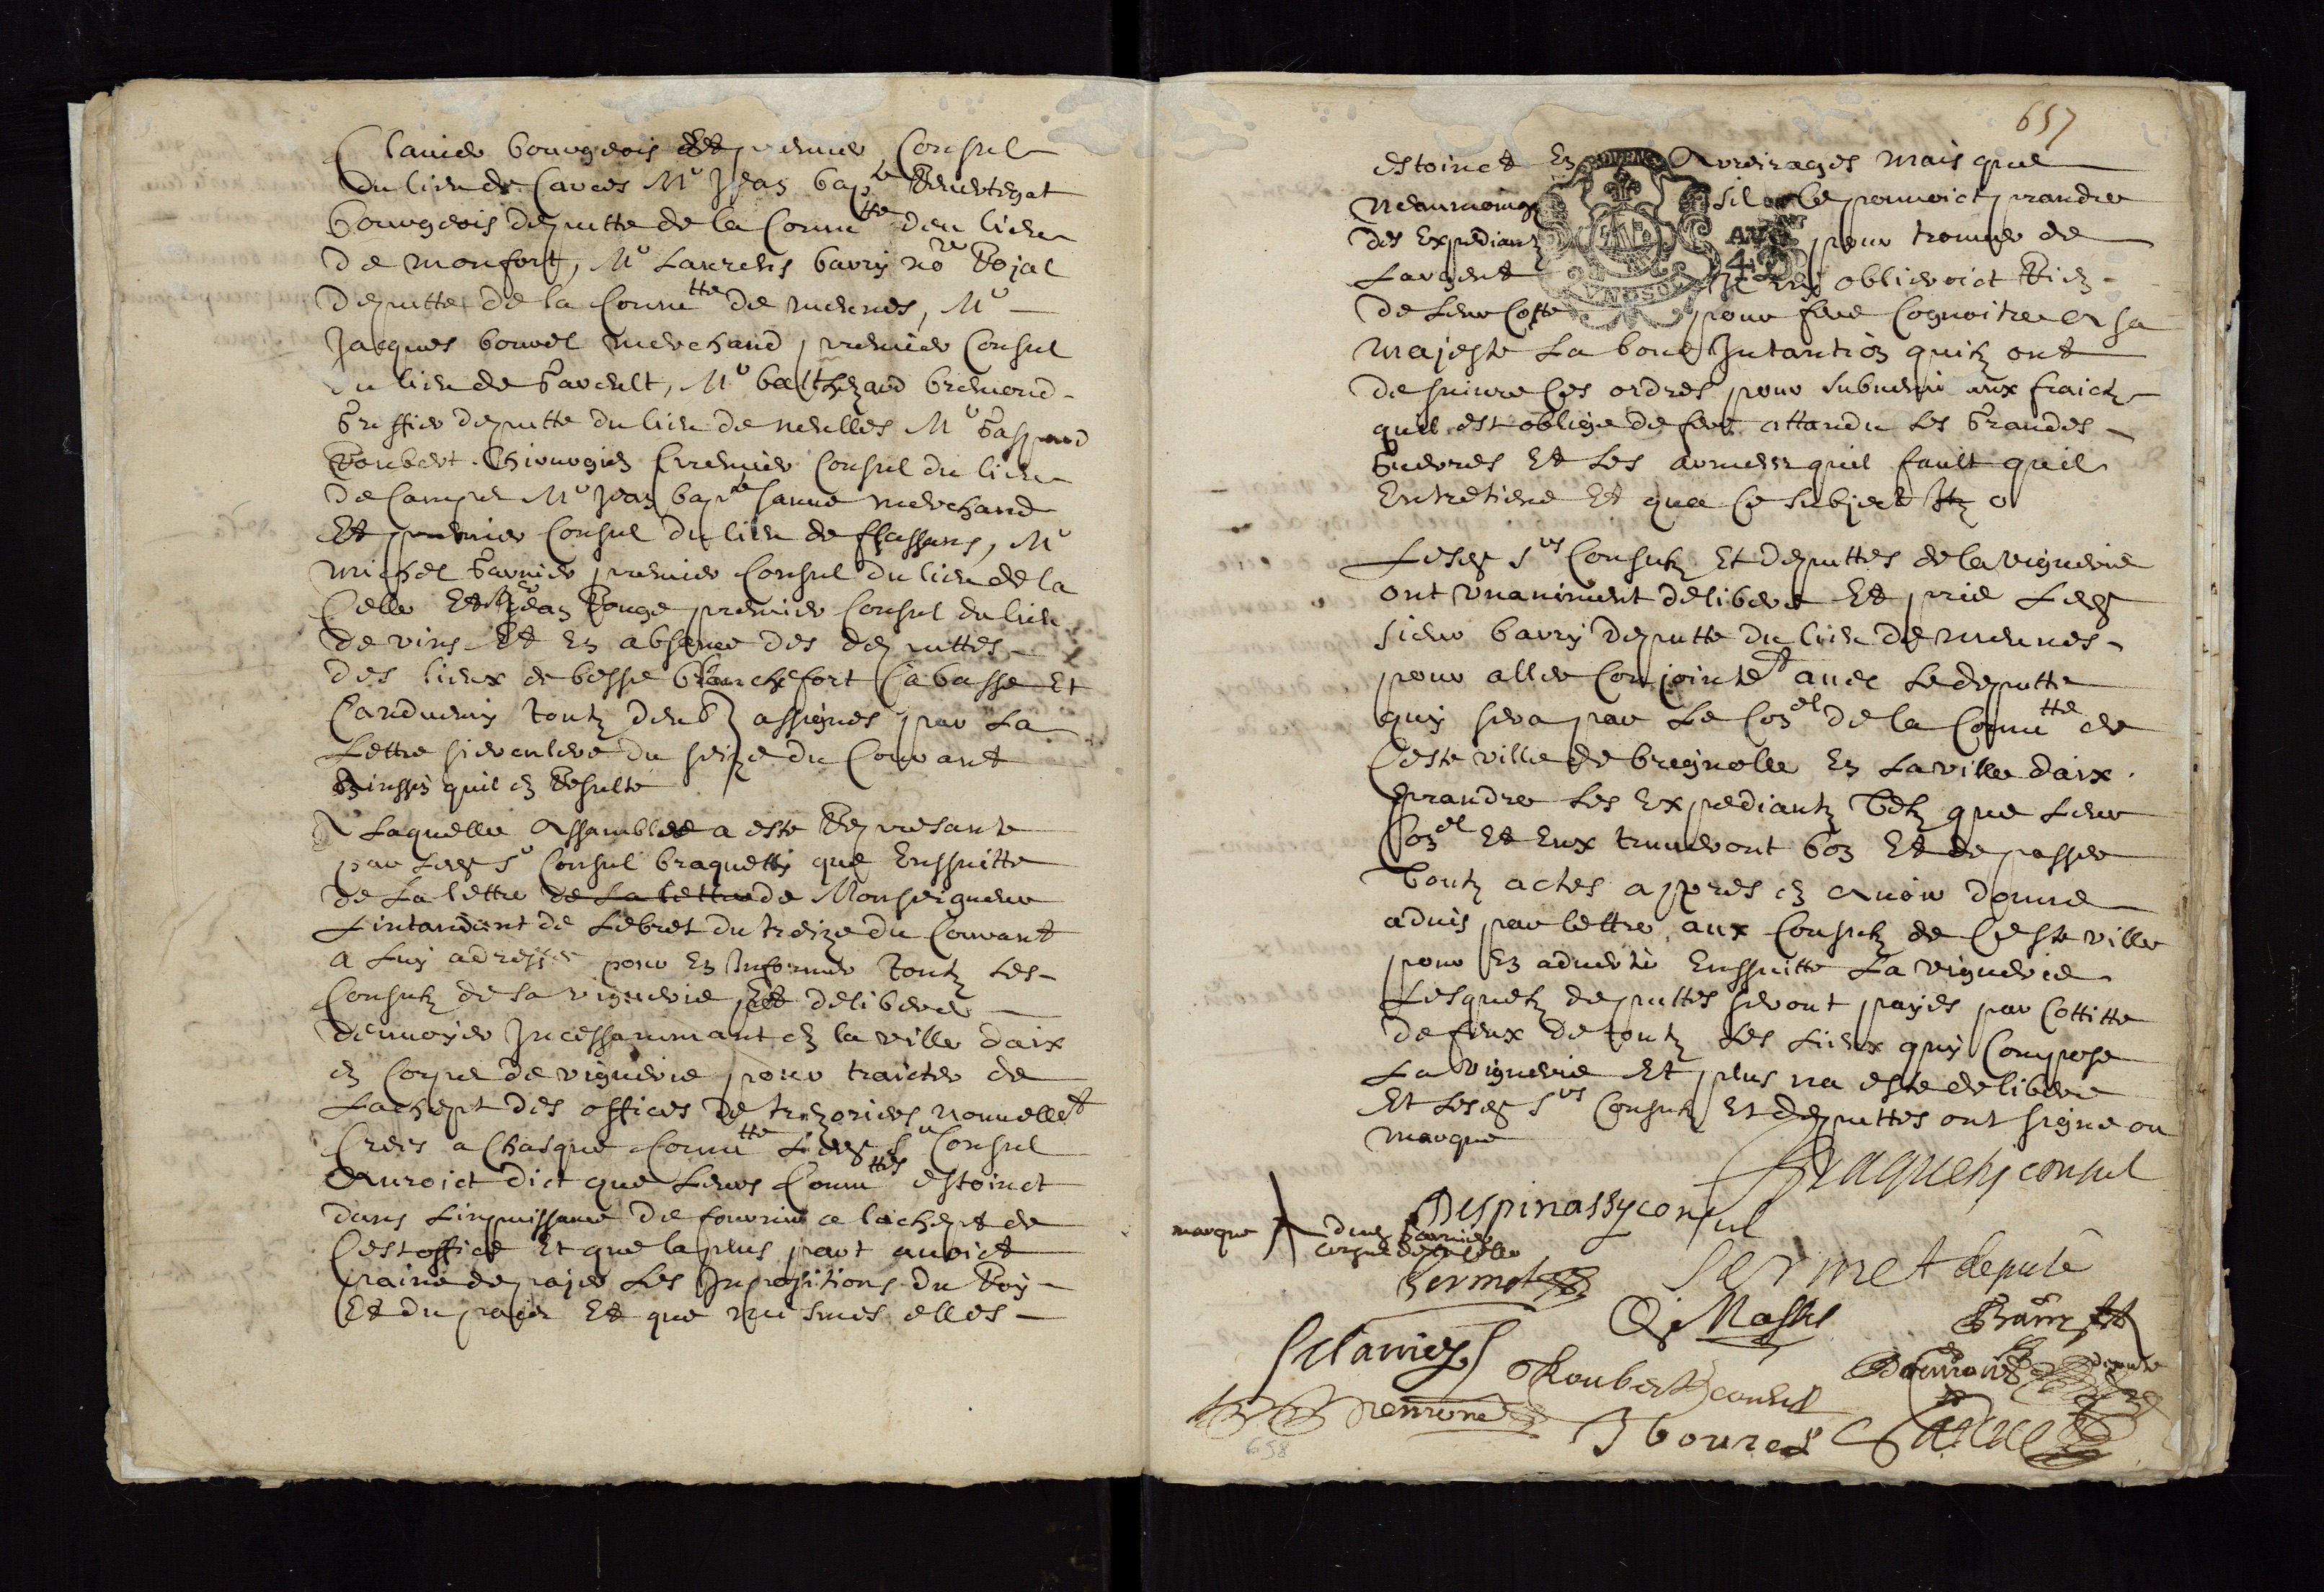 Clavier bourgeois Et premier Consul
du lieu de Carces Mr Jean bapte Reuertegat
bourgeois deputte de la Comutte deu lieu
de monfort, Mr Laurens barry nore Rojal
deputte de la Comutte de meunes, Mr
Jacques bourel merchand premier Consul
du lieu de Gareult, Mr balthezard bremond
Greffier deputte du lieu de neulles Mr Gaspard
Roubert Chirurgien premier Consul du lieu
de Camps Mr Jean bapte Janne merchand
Et premier Consul du lieu de flassans, Mr
michel Garnier premier Consul du lieu de la
Celle Et Mr Jean Rouge premier Consul du lieu
de vins Et En absence des deputtes
des lieux de besse blanchefort Cabasse Et
Canduemy toutz deub assignes par La
Lettre sircoulere du seize du Courant
Ainssin quil en Resulte
A Laquelle Assamblee a este Represante
par Ledt Sr Consul braquetty que Enssuitte
de La lettre de La lettre de Monseigneur
Lintandant de Lebret du treize du Courant
a Luy adressee pour En Informer toutz Les
Consulz de sa viguerie Et deliberer
denvoyer Incessammant en la ville daix
en Corps de viguerie pour traicter de
Lachept des offices de trezoriers nouuellet
Crees a Chasque Comutte Ledt Sr Consul
Auroict dict que Leurs Comuttes estoinct
dans Linpuissance de fournir a lachept de
Cest office Et que la plus part auoict
paine de pajer Les Inpositions du Roy
Et du pais Et que mesmes elles
657
estoinct En Arreirages mais que
neaumoings sil Ce pouuoict prandre
des Expediantz pour trouuer de
Largent obliroict Rien
de Leur Coste pour fere Cognoitre A sa
majeste La bone Intantion quilz ont
de suivre Ces ordres pour subuenir aux fraictz
quil est oblige de fere attandu Les Grandes
Guerres Et Les armees quil fault quil
Entretiene Et qua Ce Subject Itz o
Lesdt Srs Consulz Et deputtes de la viguerie
ont vnaniment delibere Et prie Ledt
sieur barry deputte du lieu de meunes
pour aller Conjointet auec Le deputte
quy sera par Le Conel de la Comutte de
Ceste ville de brignolle En La ville daix
prandre Les Expediantz telz que Leur
Conel Et Eux truueront bon Et de passer
toutz actes appres en Auoir donne
aduis par lettre aux Consulz de Ceste ville
pour En advertir Enssuitte La viguerie
Lesquelz deputtes seront payes par Cottitte
de feux de toutz Les Lieux quy Compose
La viguerie Et plus na este delibere
Et Lesdt Srs Consulz Et deputtes ont signe ou
marque
Braquety consul
Despinassy consul
marque
Garnier
consul de la Celle
Sermet
Sermet depute
Masse
Clavier
Roubert consul
depute
Bremond
J bourel
658